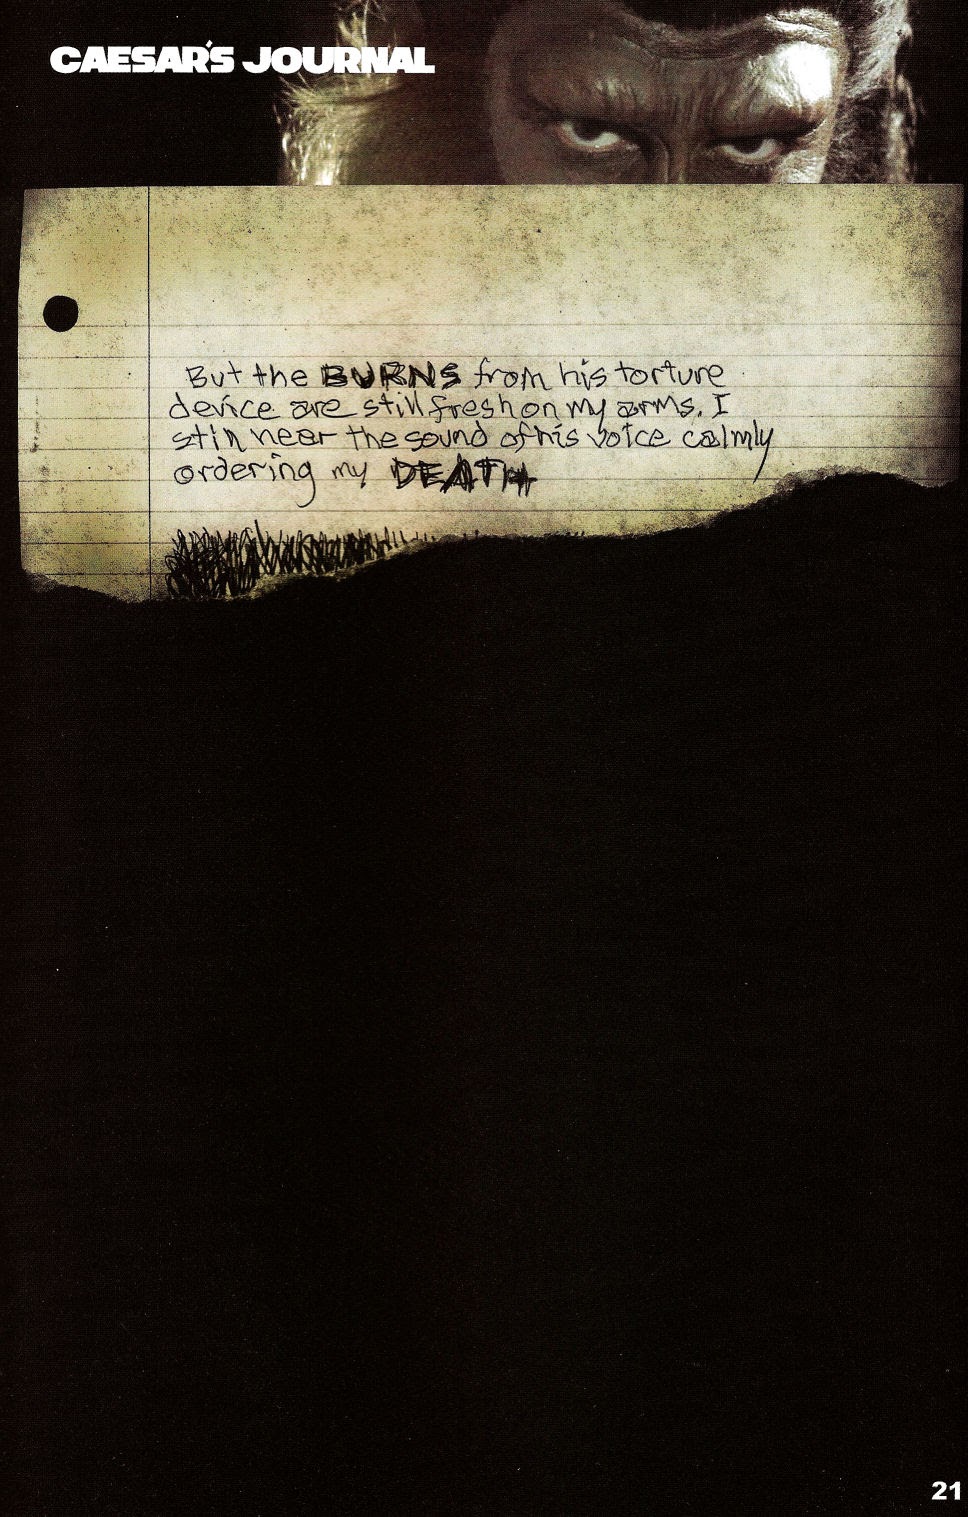 CAESAR'S JOURNAL
But the BURNS from his torture
device are still fresh on my arms. I
still hear the sound of his voice calmly
ordering my DEATH
21